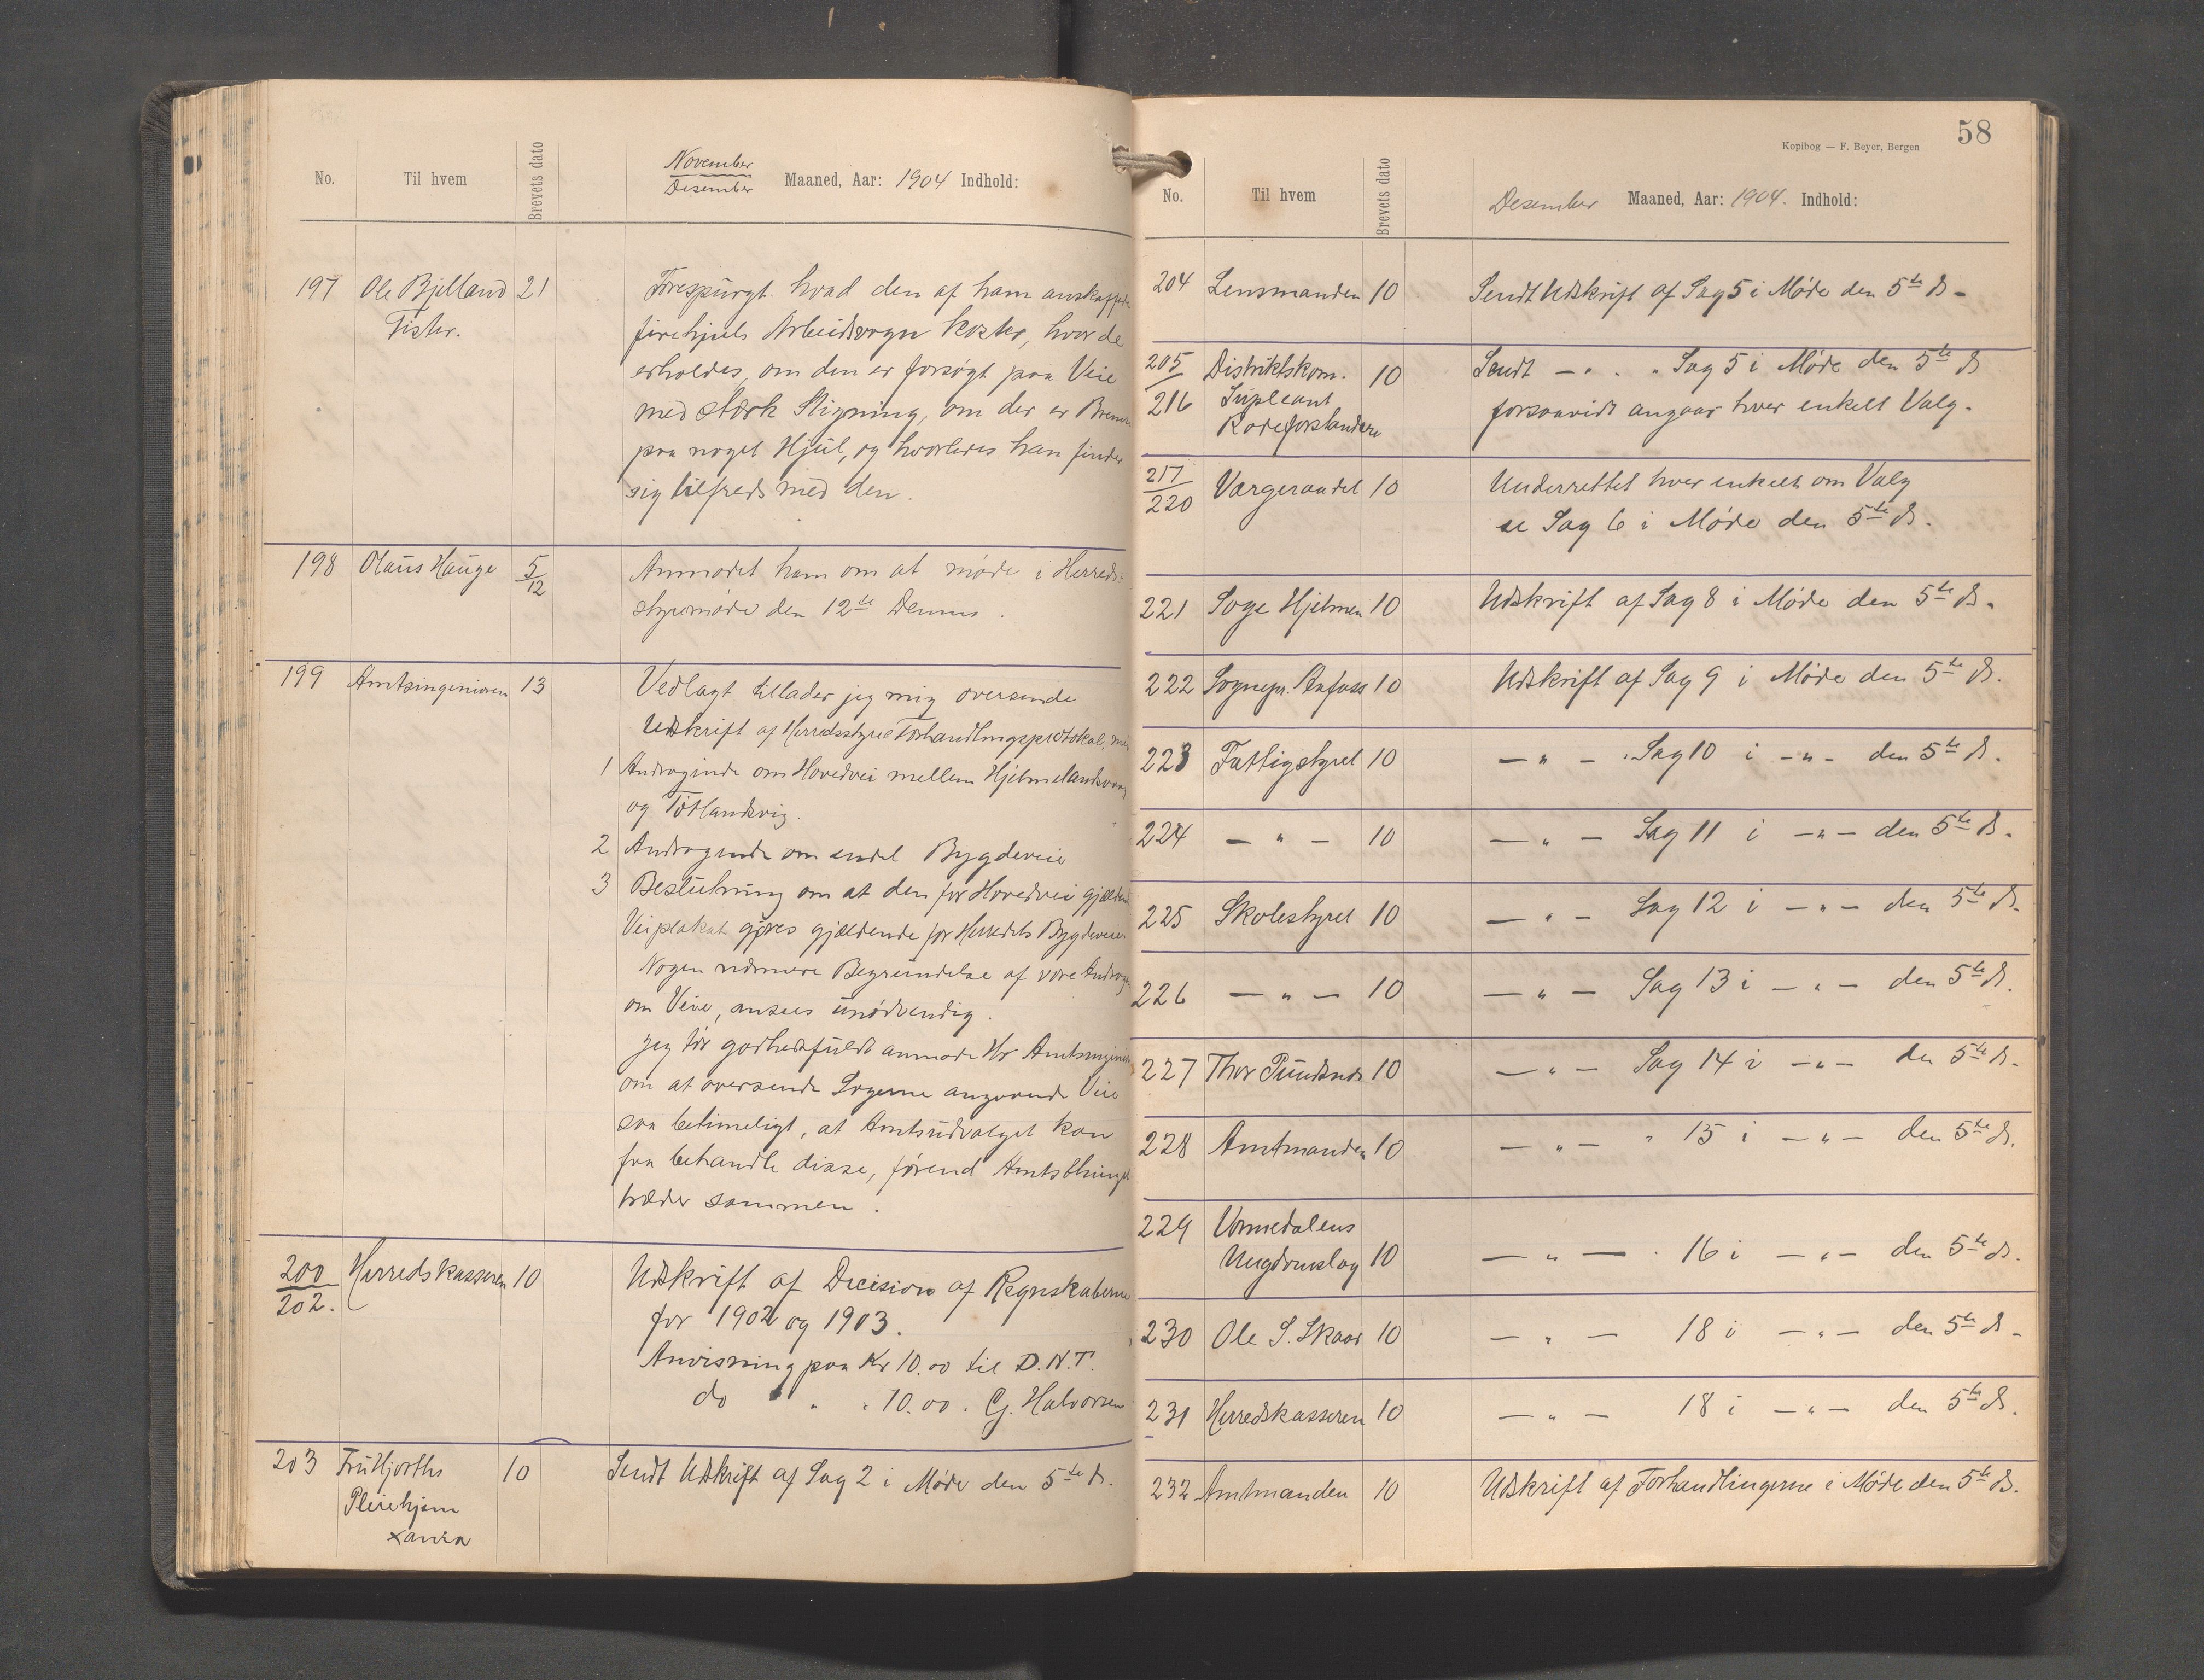 No. Til hvem Brevets dato November / Desember Maaned, Aar: 1904 Indhold:
197 Ole Bjelland 21 Forespurgt hvad den af ham anskaffede
Fister. firehjuls Arbeidsvogn koster, hvor de
erholdes, om den er forsøgt paa Veie
med stærk Stigning, om der er Bremse
paa noget Hjul, og hvorledes han finder
sig tilfreds med den.
198 Olaus Hauge 5/12 Anmodet ham om at møde i Herreds-
styremøde den 12te Dennes.
199 Amtsingeniøren 13 Vedlagt tillader jeg mig oversende
Udskrift af Herredsstyrets Forhandlingsprotokol, med
1 Andragende om Hovedvei mellem Hjelmelandsvaag
og Tøtlandsvig.
2 Andragende om endel Bygdeveie
3 Beslutning om at den for Hovedveie gjældende
Veiplakat gjøres gjældende for Herredets Bygdeveie
Nogen nærmere Begrundelse af vore Andrag
om Veie, ansees unødvendig.
Jeg tør godhedsfuldt anmode Hr Amtsingeniør
om at oversende Sagerne angaaende Veie
saa betimeligt, at Amtsudvalget kan
faa behandle disse, førend Amtsthinget
træder sammen.
200/202. Herredskasseren 10 Udskrift af Decision af Regnskaberne
for 1902 og 1903.
Anvisning paa Kr 10.00 til D.N.T.
do " " 10.00 " Cj. Halvorsen
203 Fru Hjorths 10 Sendt Udskrift af Sag 2 i Møde den 5te ds.
Pleiehjem
Xania
Kopibog — F. Beyer, Bergen 58
No. Til hvem Brevets dato Desember Maaned, Aar: 1904. Indhold:
204 Lensmanden 10 Sendt Udskrift af Sag 5 i Møde den 5te ds -
205/216 Distriktskom. 10 Sendt — " . " Sag 5 i Møde den 5te ds
Supleant forsaavidt angaar hver enkelt Valg.
Rodeforstandere
217/220 Værgeraadet 10 Underrettet hver enkelt om Valg
se Sag 6 i Møde den 5te ds.
221 Soge Hjelmen 10 Udskrift af Sag 8 i Møde den 5te ds.
222 Sognepr. Aafoss 10 Udskrift af Sag 9 i Møde den 5te ds.
223 Fattigstyret 10 — " — " Sag 10 i — " — den 5te ds.
224 — " — 10 — " — Sag 11 i — " — den 5te ds.
225 Skolestyret 10 — " — Sag 12 i — " — den 5te ds.
226 — " — 10 — " — Sag 13 i — " — den 5te ds.
227 Thor Pundsnes 10 — " — Sag 14 i — " — den 5te ds.
228 Amtmanden 10 — " — " 15 i — " — den 5te ds.
229 Vormedalens
Ungdomslag 10 — " — " 16 i — " — den 5te ds.
230 Ole S. Skaar 10 — " — 18 i — " — den 5te ds -
231 Herredskasseren 10 — " — 18 i — " — den 5te ds.
232 Amtmanden 10 Udskrift af Forhandlingerne i Møde den 5te ds.